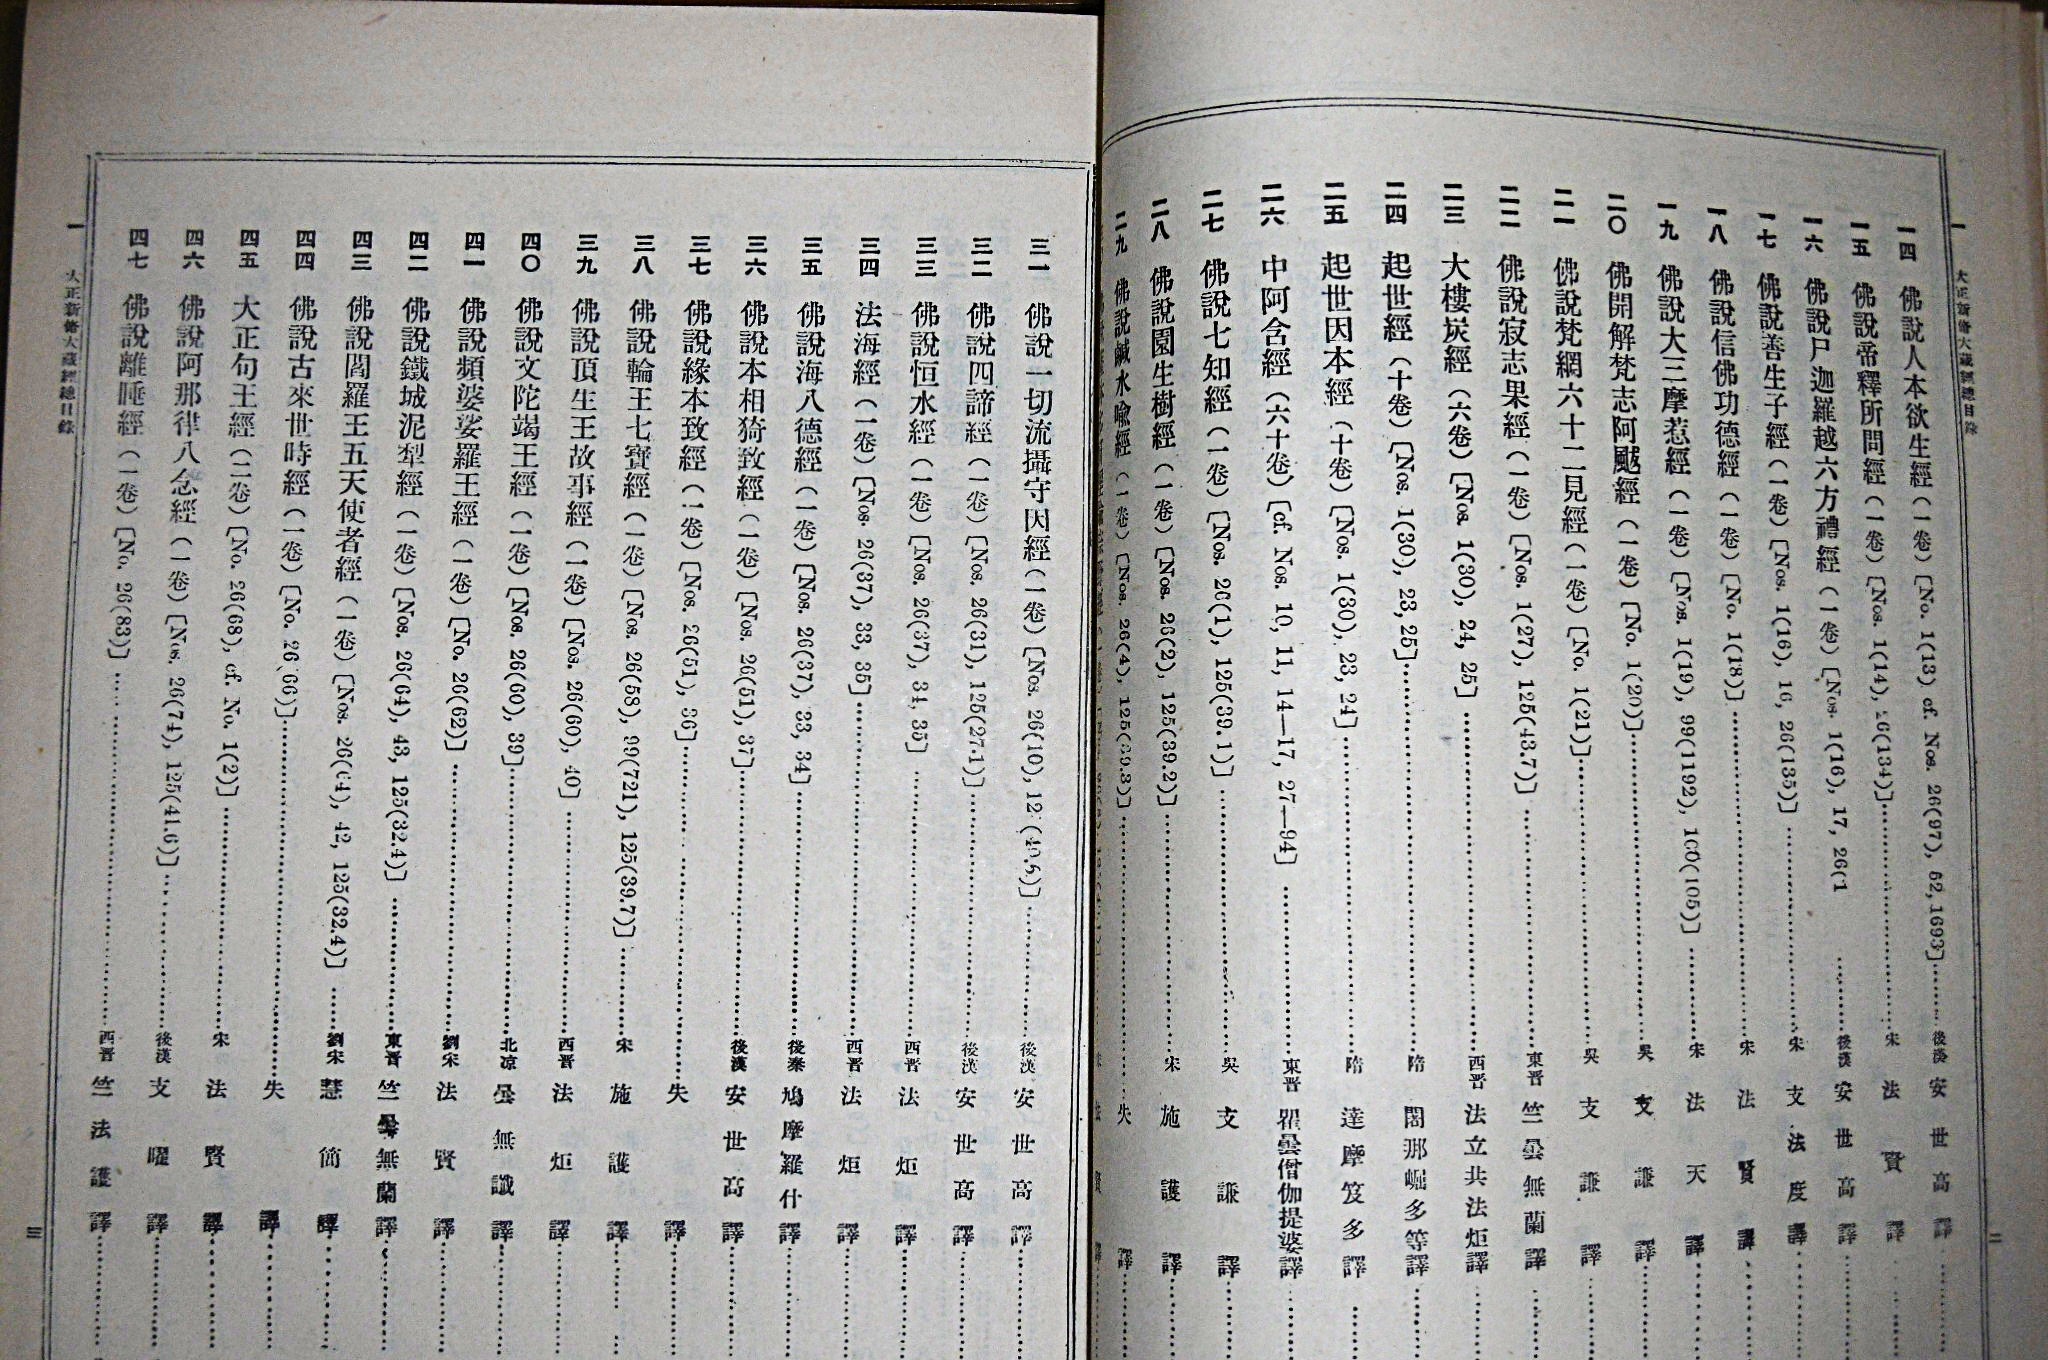 一 大正新脩大藏經總目錄 二
一四 佛說人本欲生經(一卷)[No. 1(13) cf. Nos. 26(97), 52, 1693]………後漢 安世高譯
一五 佛說帝釋所問經(一卷)[Nos. 1(14), 26(134)]………宋 法賢譯
一六 佛說尸迦羅越六方禮經(一卷)[Nos. 1(16), 17, 26(1………後漢 安世高譯
一七 佛說善生子經(一卷)[Nos. 1(16), 16, 26(135)]………宋 支法度譯
一八 佛說信佛功德經(一卷)[No. 1(18)]………宋 法賢譯
一九 佛說大三摩惹經(一卷)[Nos. 1(19), 99(1192), 100(105)]………宋 法天譯
二〇 佛開解梵志阿颰經(一卷)[No. 1(20)]………吳 支謙譯
二一 佛說梵網六十二見經(一卷)[No. 1(21)]………吳 支謙譯
二二 佛說寂志果經(一卷)[Nos. 1(27), 125(43.7)]………東晉 竺曇無蘭譯
二三 大樓炭經(六卷)[Nos. 1(30), 24, 25]………西晉 法立共法炬譯
二四 起世經(十卷)[Nos. 1(30), 23, 25]………隋 闍那崛多等譯
二五 起世因本經(十卷)[Nos. 1(30), 23, 24]………隋 達摩笈多譯
二六 中阿含經(六十卷)[cf. Nos. 10, 11, 14—17, 27—94]………東晉 瞿曇僧伽提婆譯
二七 佛說七知經(一卷)[Nos. 26(1), 125(39.1)]………吳 支謙譯
二八 佛說園生樹經(一卷)[Nos. 26(2), 125(39.2)]………宋 施護譯
二九 佛說鹹水喩經(一卷)[Nos. 26(4), 125(39.3)]………失譯
三一 佛說一切流攝守因經(一卷)[Nos. 26(10), 12 (40.6)]………後漢 安世高譯
三二 佛說四諦經(一卷)[Nos. 26(31), 125(27.1)]………後漢 安世高譯
三三 佛說恒水經(一卷)[Nos. 26(37), 34, 35]………西晉 法炬譯
三四 法海經(一卷)[Nos. 26(37), 33, 35]………西晉 法炬譯
三五 佛說海八德經(一卷)[Nos. 26(37), 33, 34]………後秦 鳩摩羅什譯
三六 佛說本相猗致經(一卷)[Nos. 26(51), 37]………後漢 安世高譯
三七 佛說緣本致經(一卷)[Nos. 26(51), 36]………失譯
三八 佛說輪王七寶經(一卷)[Nos. 26(58), 99(721), 125(39.7)]………宋 施護譯
三九 佛說頂生王故事經(一卷)[Nos. 26(60), 40]………西晉 法炬譯
四〇 佛說文陀竭王經(一卷)[Nos. 26(60), 39]………北凉 曇無讖譯
四一 佛說頻婆娑羅王經(一卷)[No. 26(62)]………劉宋 法賢譯
四二 佛說鐵城泥犁經(一卷)[Nos. 26(64), 43, 125(32.4)]………東晉 竺曇無蘭譯
四三 佛說閻羅王五天使者經(一卷)[Nos. 26(64), 42, 125(32.4)]………劉宋 慧簡譯
四四 佛說古來世時經(一卷)[No. 26(66)]………失譯
四五 大正句王經(二卷)[No. 26(68), cf. No. 1(2)]………宋 法賢譯
四六 佛說阿那律八念經(一卷)[Nos. 26(74), 125(41.6)]………後漢 支曜譯
四七 佛說離睡經(一卷)[No. 26(83)]………西晉 竺法護譯
一 大正新脩大藏經總目錄 三